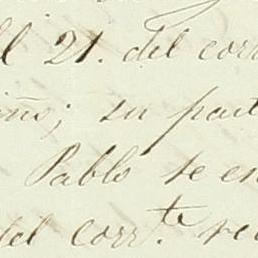 el 21. del corr
iño; su part
Pablo se en
del corr.te rec